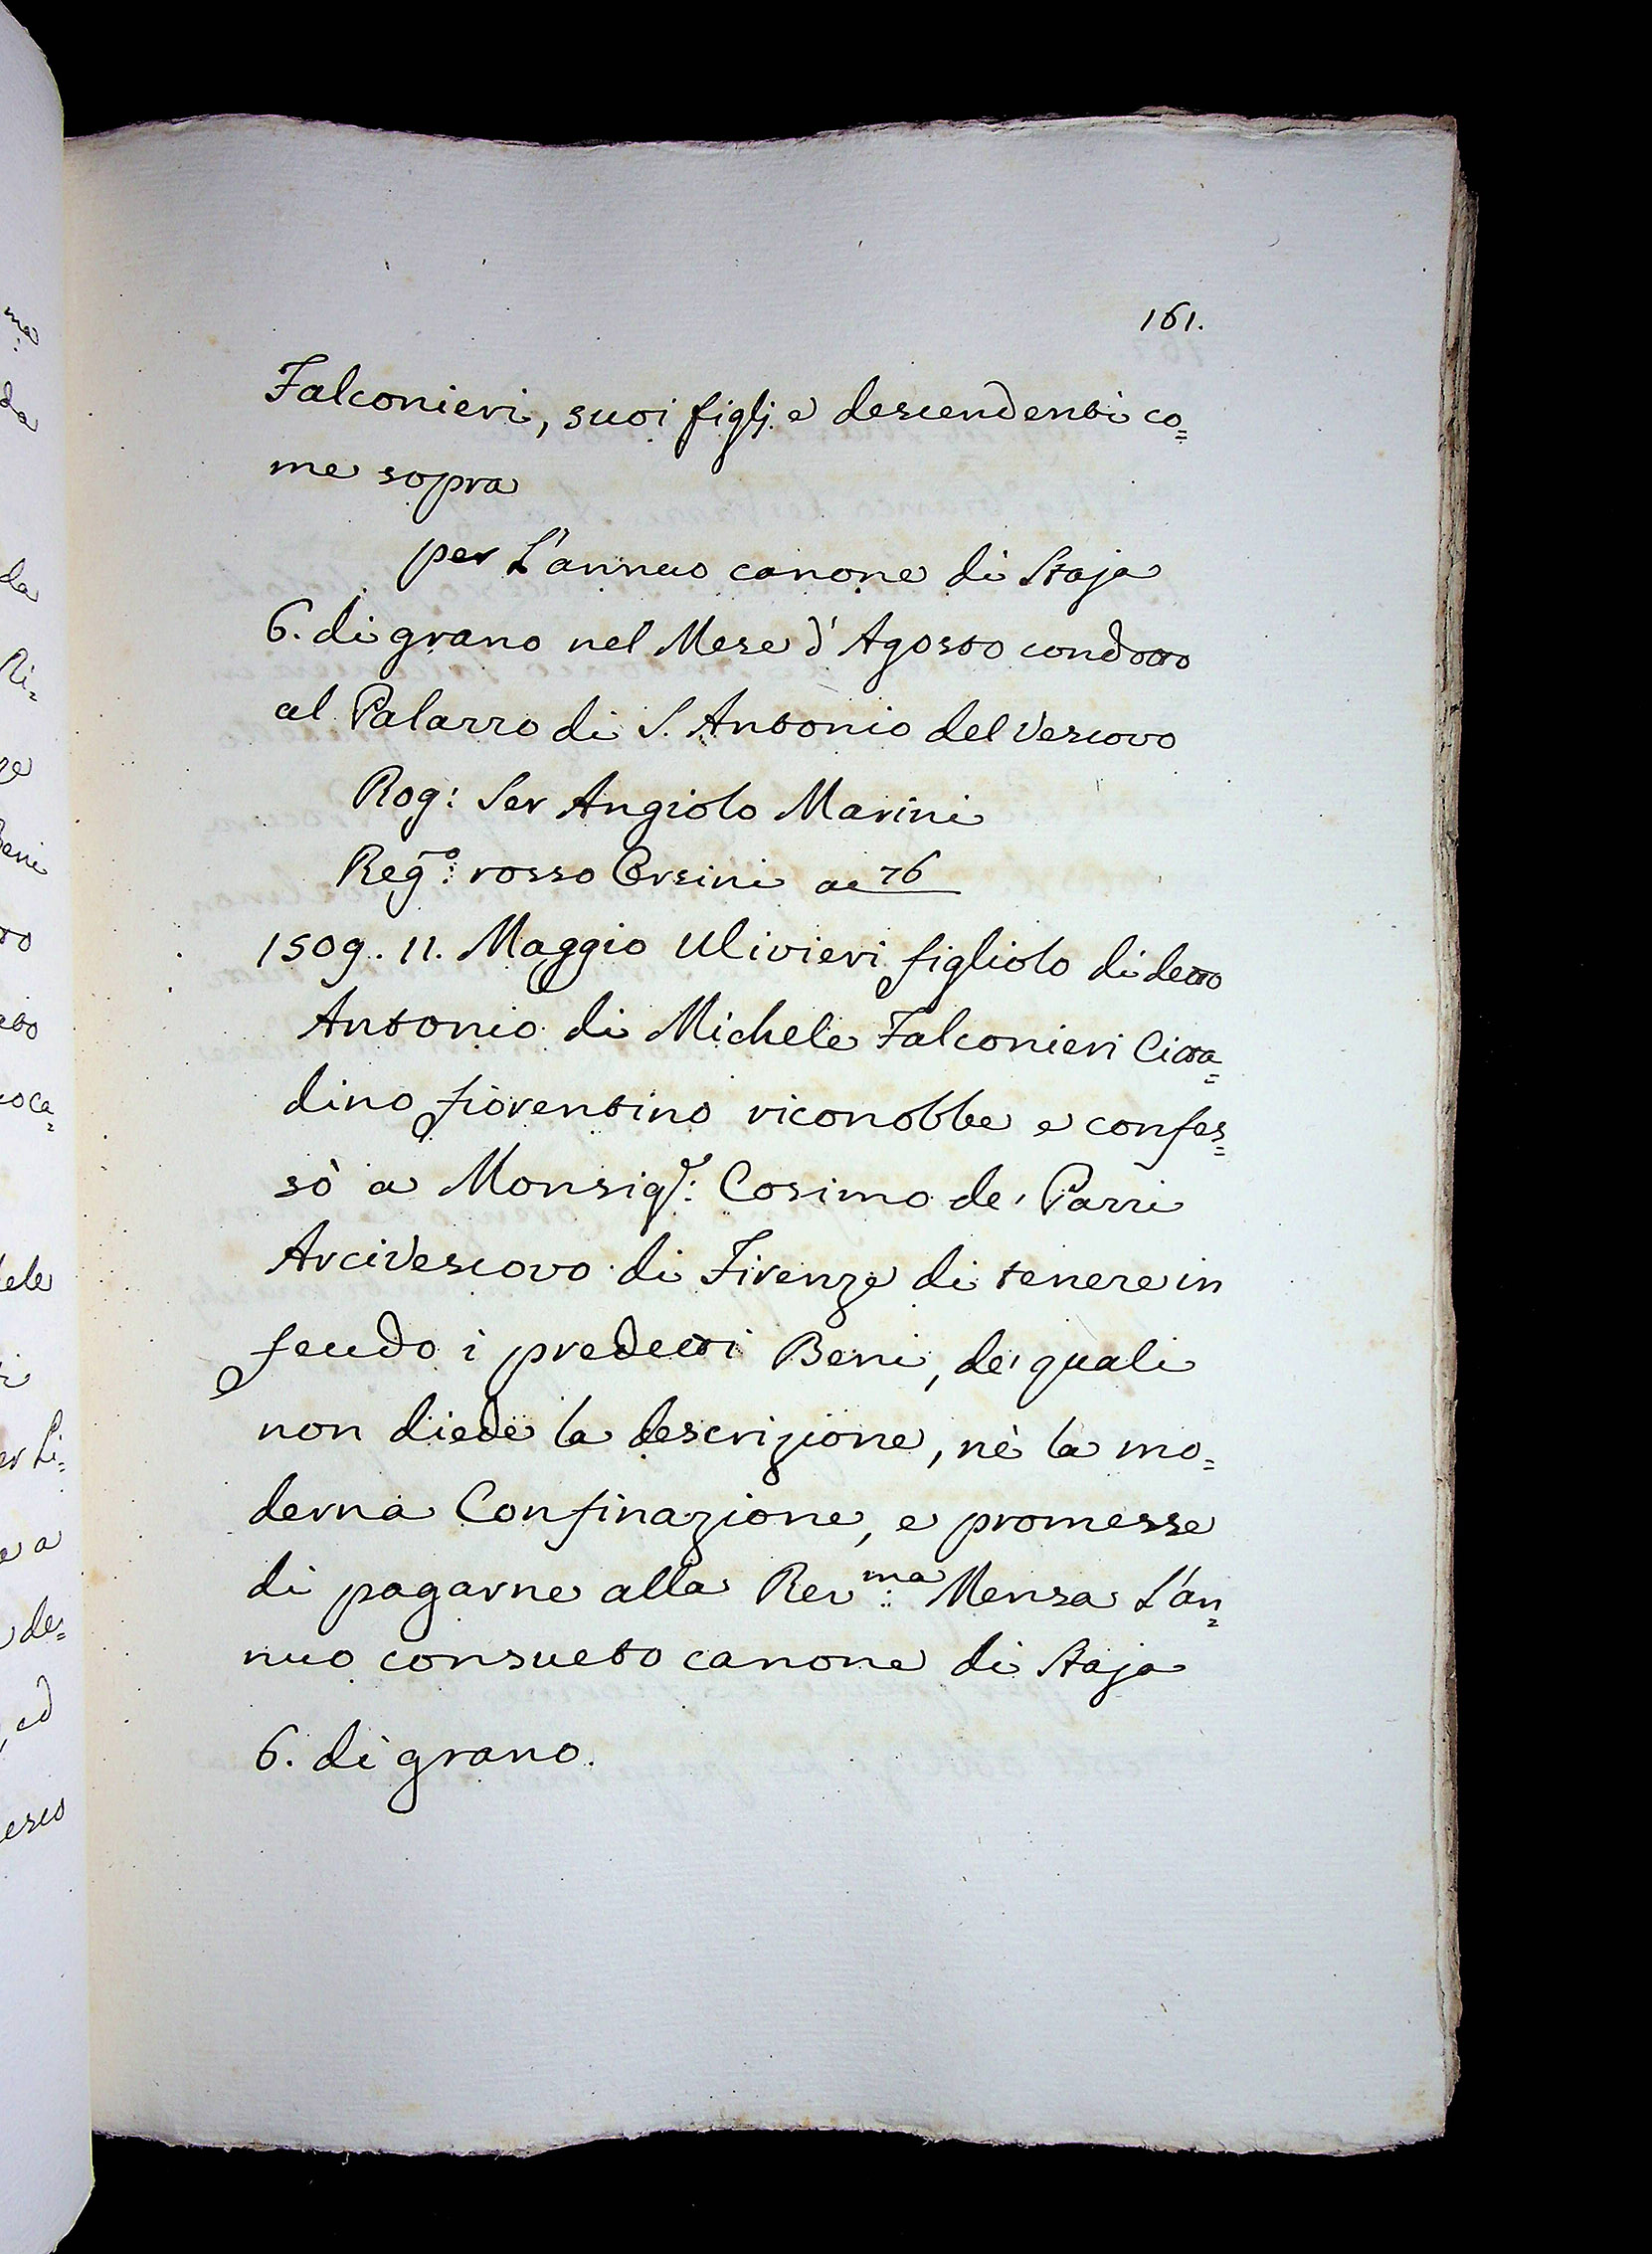 161.
Falconieri, suoi figlj e descendenti co=
me sopra
per L'annuo canone di Staja
6. di grano nel Mese d'Agosto condotto
al Palazzo di S. Antonio del Vescovo
Rog: Ser Angiolo Marini
Reg.º: rosso Orsini a 76
1509. 11. Maggio Ulivieri figliolo di detto
Antonio di Michele Falconieri Citta=
dino fiorentino riconobbe e confes=
sò a Monsig.r: Cosimo de' Pazzi
Arcivescovo di Firenze di tenere in
feudo i predetti Beni, de' quali
non diede la descrizione, nè la mo=
derna Confinazione, e promesse
di pagarne alla Rev.ma: Mensa L'an=
nuo consueto canone di Staja
6. di grano.